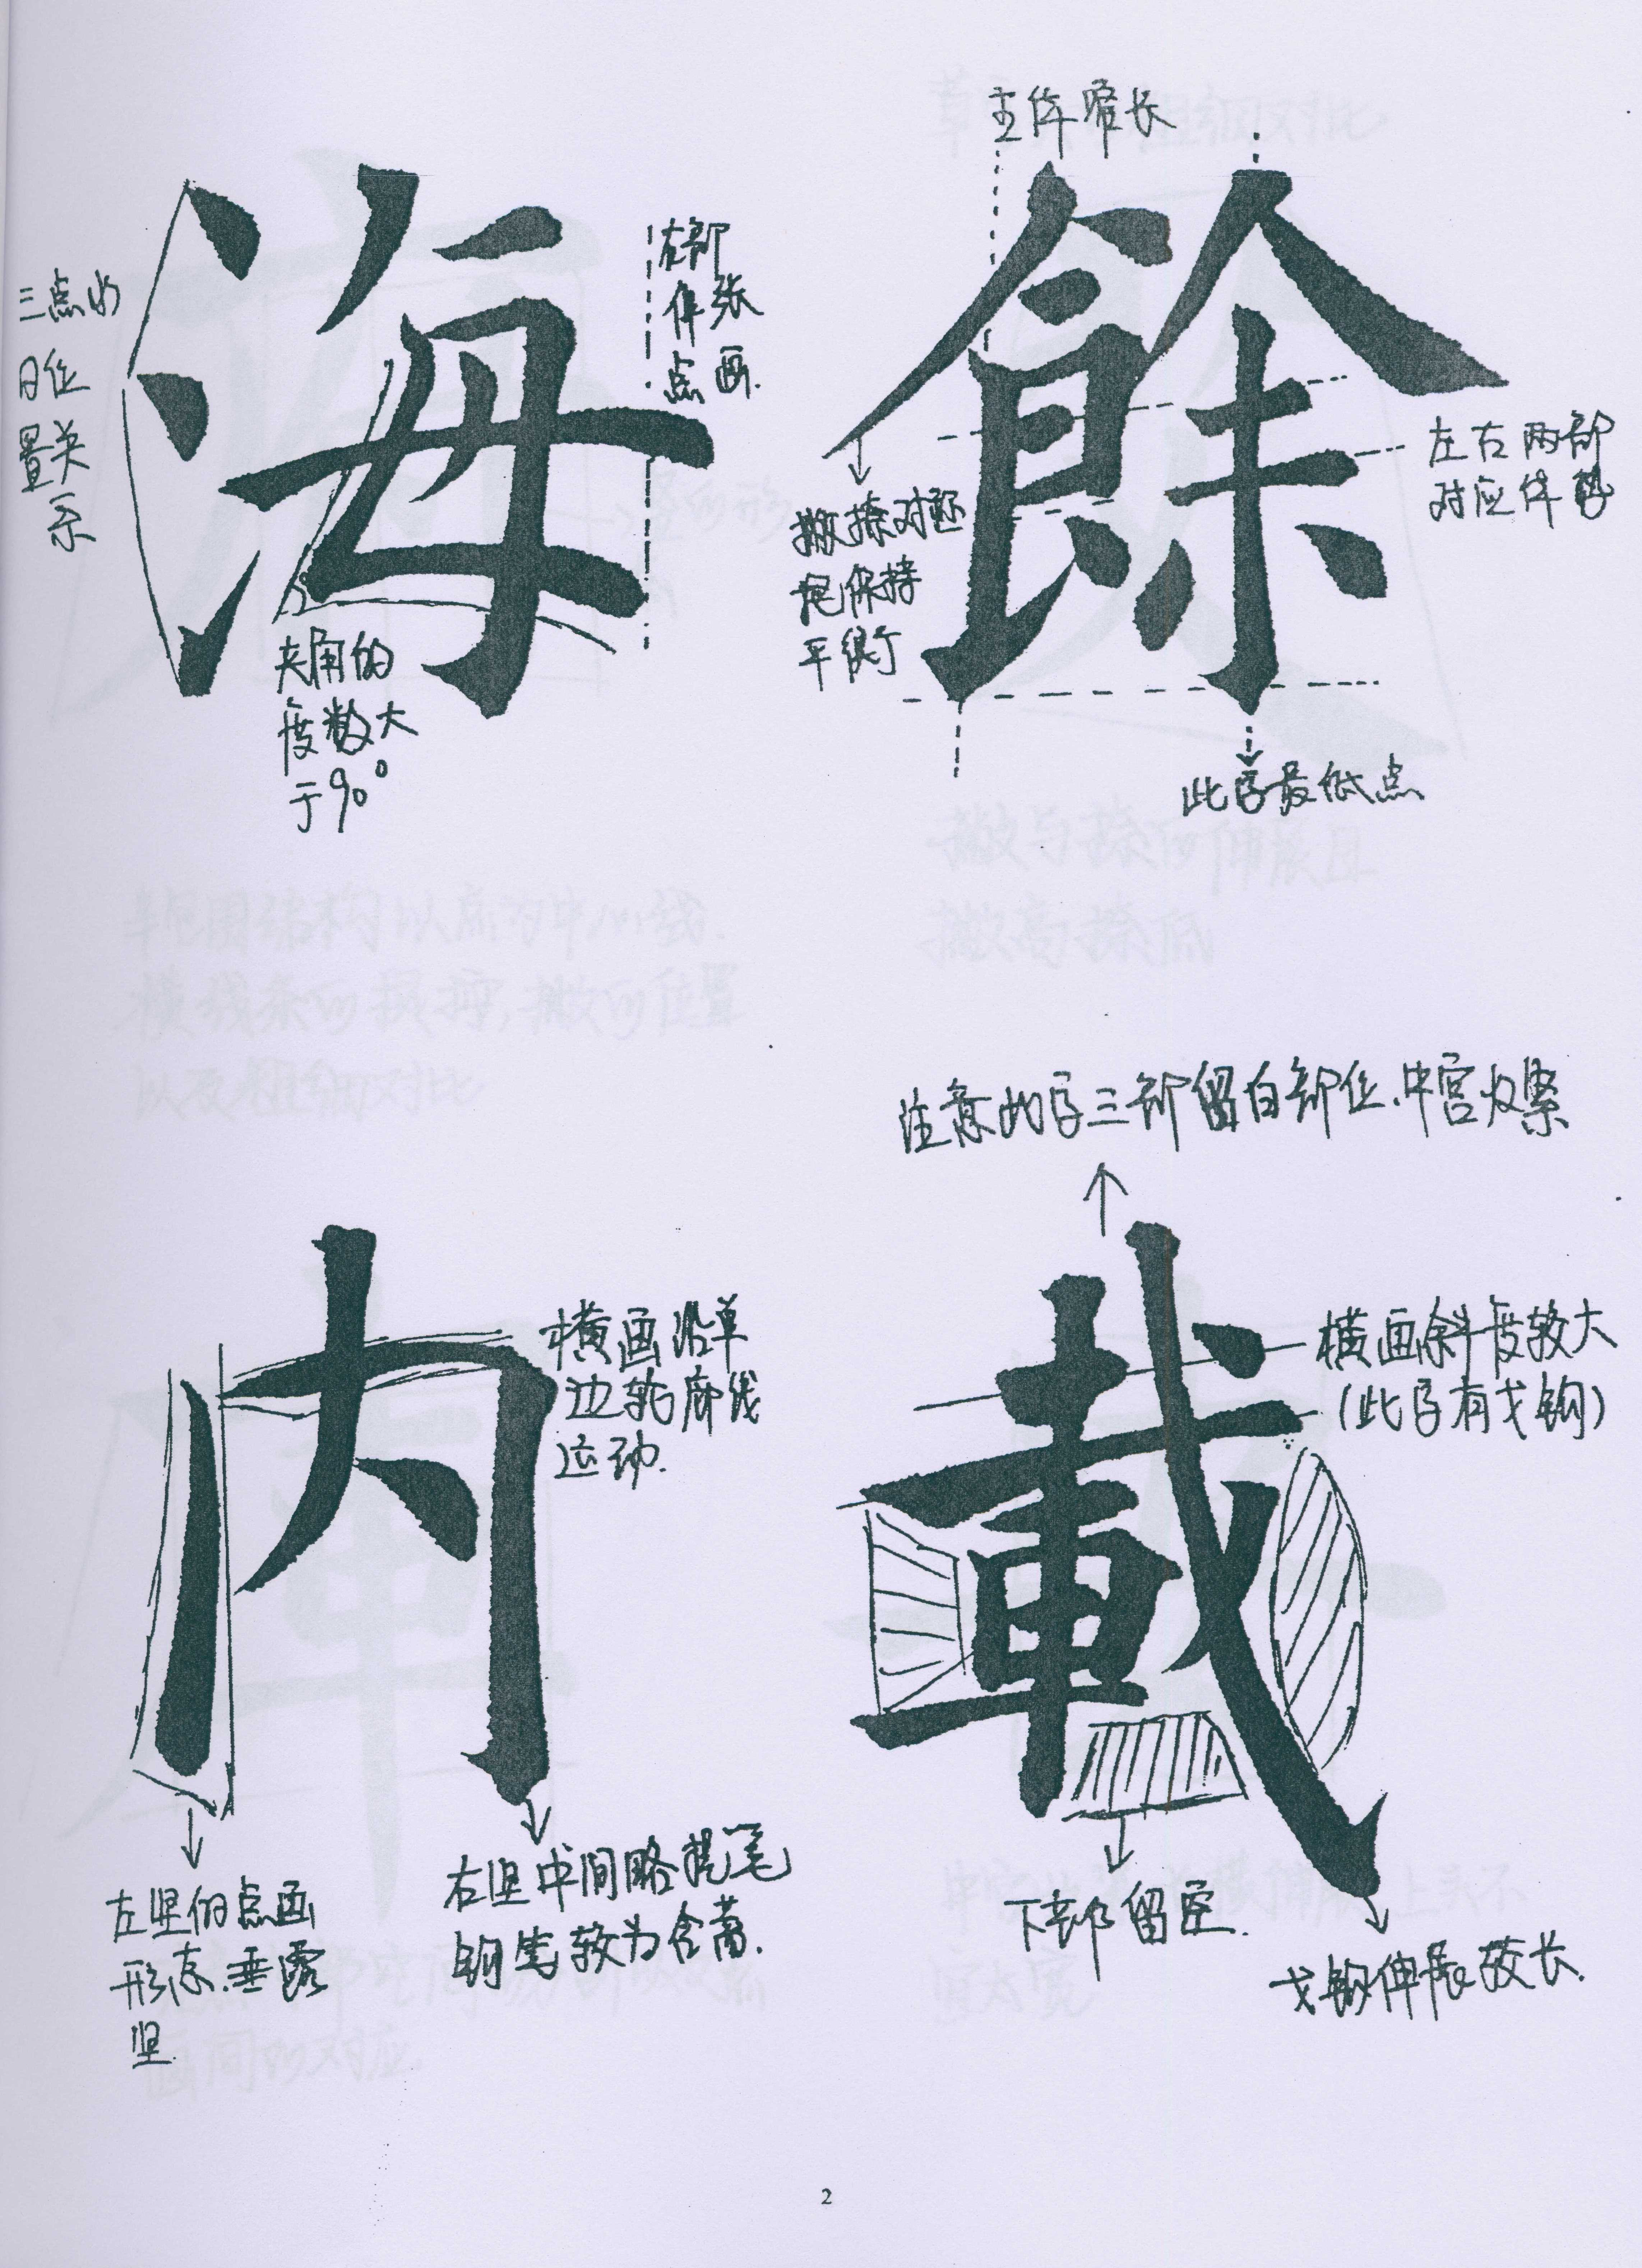 海
三点水
的位
置关
示
右部
伸张
点画.
夹角的
度数大
于90°
餘
主体窄长
左右两部
对应体势
撇捺对称
把保持
平衡
此字最低点
内
横画沿单
边轮廓线
运动.
左竖的点画
形态.垂露
竖.
右竖中间略提笔
钩笔较为含蓄.
注意此字三部留白部位.中宫收紧
載
横画斜度较大
(此字有戈钩)
下部留空.
戈钩伸展较长.
2